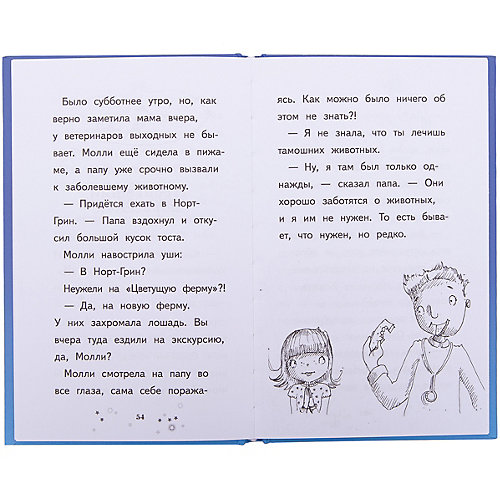 Было субботнее утро, но, как
верно заметила мама вчера,
у ветеринаров выходных не бы-
вает. Молли ещё сидела в пижа-
ме, а папу уже срочно вызвали
к заболевшему животному.
— Придётся ехать в Норт-
Грин. — Папа вздохнул и отку-
сил большой кусок тоста.
Молли навострила уши:
— В Норт-Грин?
Неужели на «Цветущую ферму»?!
— Да, на новую ферму.
У них захромала лошадь. Вы
вчера туда ездили на экскурсию,
да, Молли?
Молли смотрела на папу во
все глаза, сама себе поража-
54
ясь. Как можно было ничего об
этом не знать?!
— Я не знала, что ты лечишь
тамошних животных.
— Ну, я там был только од-
нажды, — сказал папа. — Они
хорошо заботятся о животных,
и я им не нужен. То есть быва-
ет, что нужен, но редко.